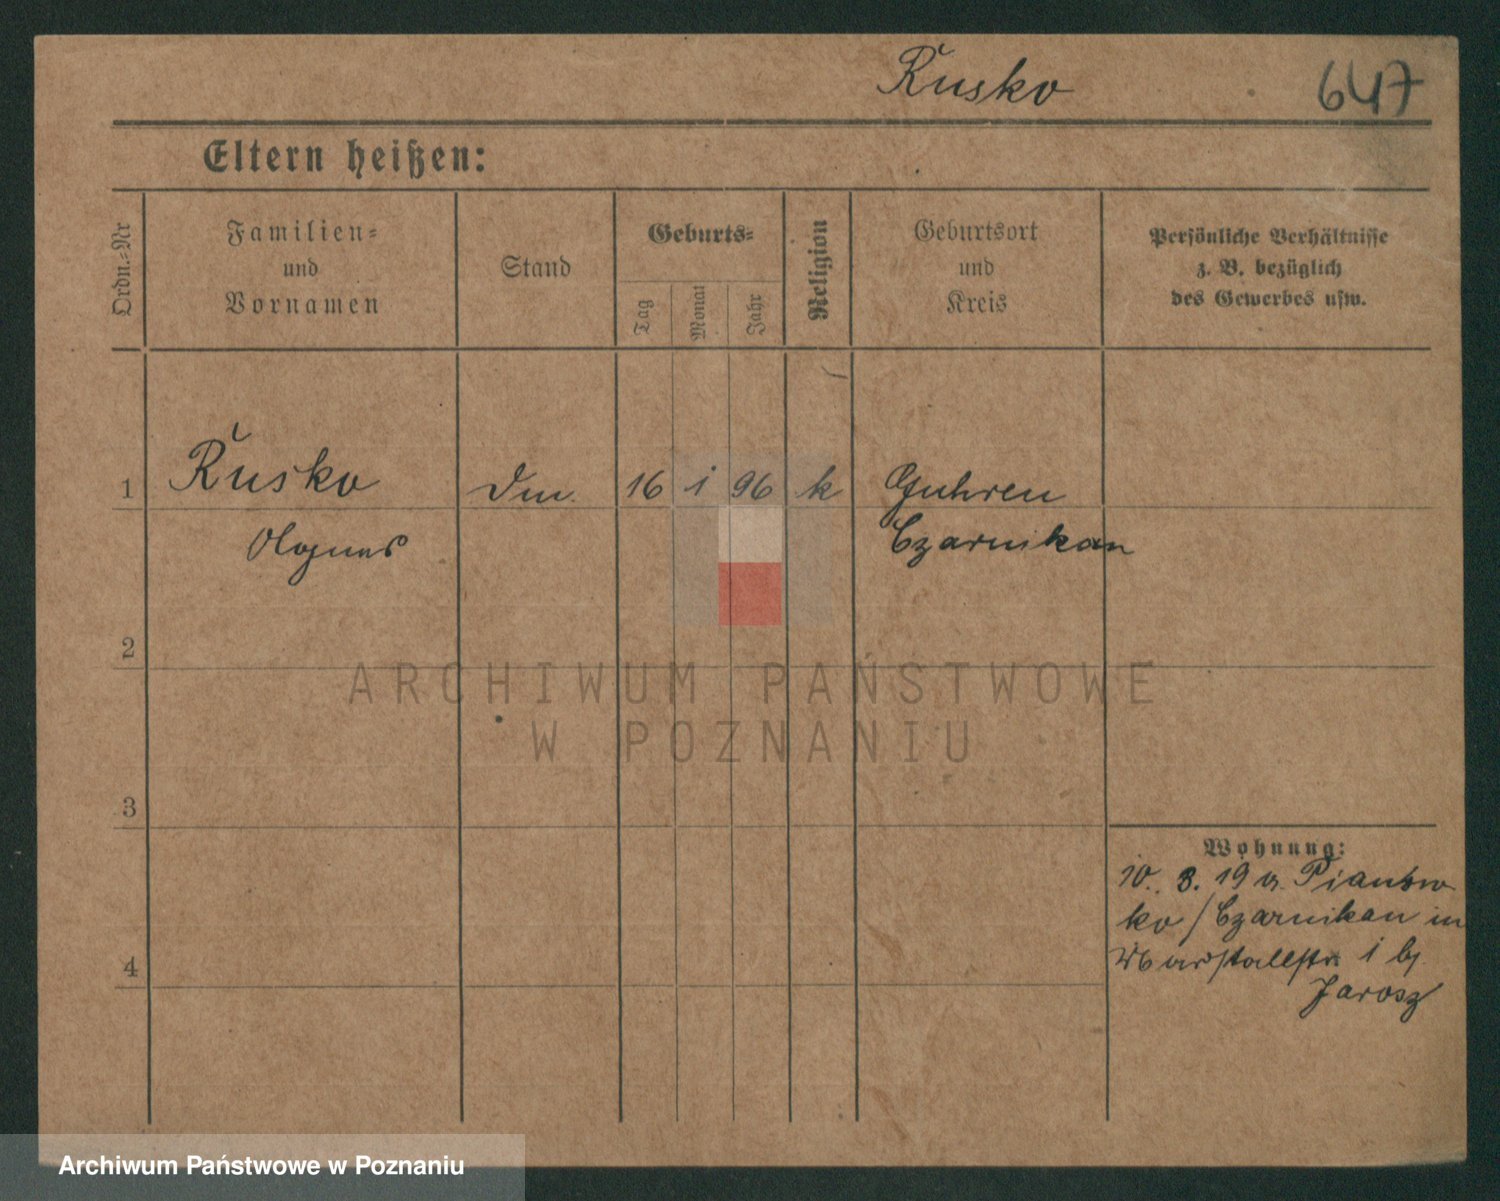 Rusko
647
Eltern heißen:
Ordn.-Nr
Familien-
und
Vornamen
Stand
Geburts-
Tag
Monat
Jahr
Religion
Geburtsort
und
Kreis
Persönliche Verhältnisse
z. B. bezüglich
des Gewerbes usw.
1 Rusko 16 1 96 k Guhren
Agnes Czarnikau
2
3
4
Wohnung:
10. 3. 19 v. Piantow
ko / Czarnikau in
Marstallstr. 1 bj.
Jarosz
ARCHIWUM PAŃSTWOWE
W POZNANIU
Archiwum Państwowe w Poznaniu